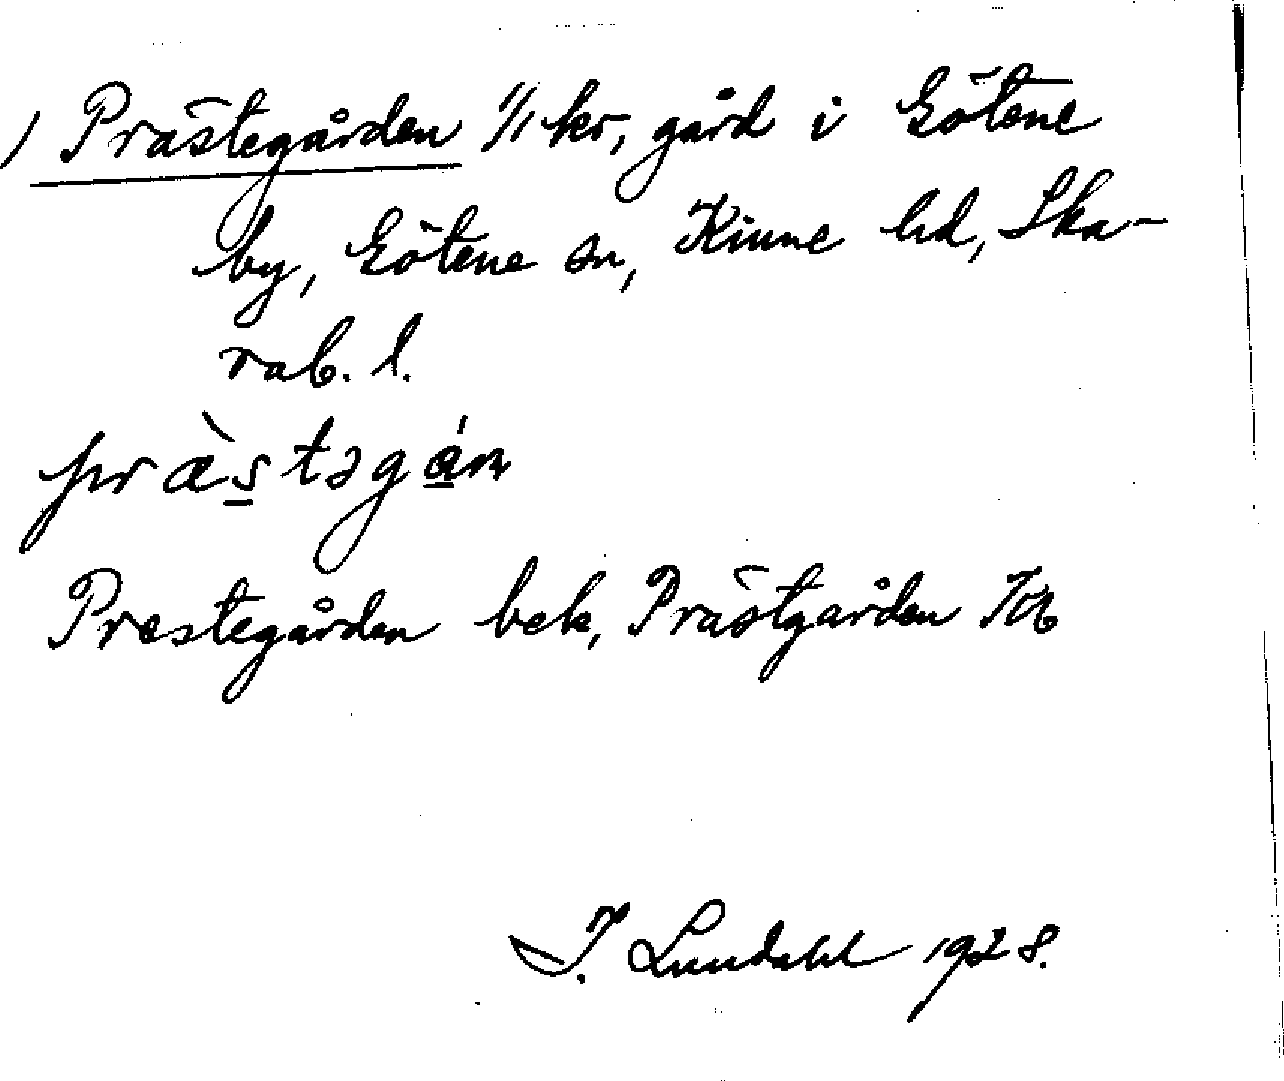 ) Prästegården 1/1 kr, gård i Götene
by, Götene sn, Kinne hd, Ska-
rab. l.
præ̀stəgán
Prestegården bek, Prästgården
I. Lundahl 1928.